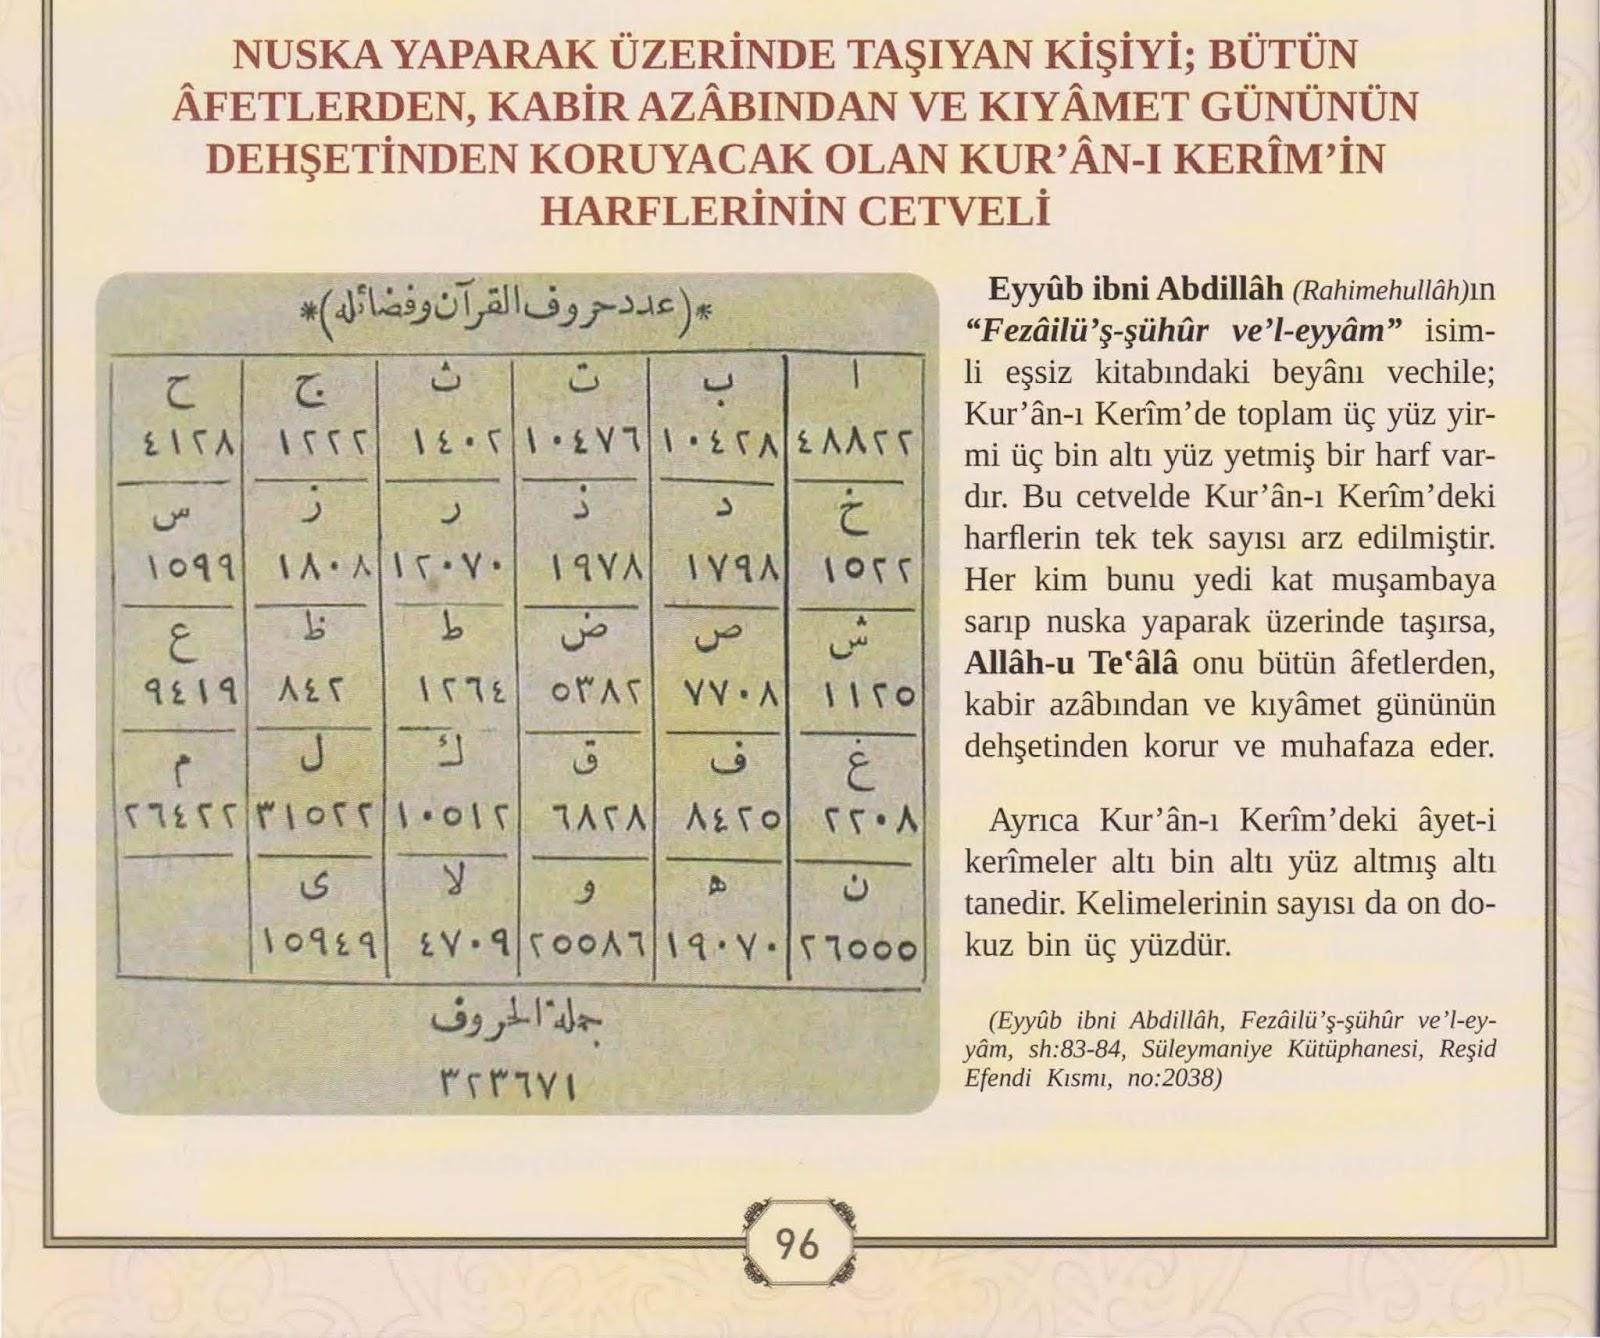 NUSKA YAPARAK ÜZERİNDE TAŞIYAN KİŞİYİ; BÜTÜN
ÂFETLERDEN, KABİR AZÂBINDAN VE KIYÂMET GÜNÜNÜN
DEHŞETİNDEN KORUYACAK OLAN KUR’ÂN-I KERÎM’İN
HARFLERİNİN CETVELİ
*(عدد حروف القرآن وفضائله)*
ا ب ت ث ج ح
٤٨٨٢٢ ١٠٤٢٨ ١٠٤٧٦ ١٤٠٢ ١٢٢٢ ٤١٢٨
خ د ذ ر ز س
١٥٢٢ ١٧٩٨ ١٩٧٨ ١٢٠٧٠ ١٨٠٨ ١٥٩٩
ش ص ض ط ظ ع
١١٢٥ ٧٧٠٨ ٥٣٨٢ ١٢٦٤ ٨٤٢ ٩٤١٩
غ ف ق ك ل م
٢٢٠٨ ٨٤٢٥ ٦٨٢٨ ١٠٥١٢ ٣١٥٢٢ ٢٦٤٢٢
ن ه و لا ى
٢٦٥٥٥ ١٩٠٧٠ ٢٥٥٨٦ ٤٧٠٩ ١٥٩٤٩
جملة الحروف
٣٢٣٦٧١
Eyyûb ibni Abdillâh (Rahimehullâh)ın
“Fezâilü’ş-şühûr ve’l-eyyâm” isim-
li eşsiz kitabındaki beyânı vechile;
Kur’ân-ı Kerîm’de toplam üç yüz yir-
mi üç bin altı yüz yetmiş bir harf var-
dır. Bu cetvelde Kur’ân-ı Kerîm’deki
harflerin tek tek sayısı arz edilmiştir.
Her kim bunu yedi kat muşambaya
sarıp nuska yaparak üzerinde taşırsa,
Allâh-u Te‘âlâ onu bütün âfetlerden,
kabir azâbından ve kıyâmet gününün
dehşetinden korur ve muhafaza eder.
Ayrıca Kur’ân-ı Kerîm’deki âyet-i
kerîmeler altı bin altı yüz altmış altı
tanedir. Kelimelerinin sayısı da on do-
kuz bin üç yüzdür.
(Eyyûb ibni Abdillâh, Fezâilü’ş-şühûr ve’l-ey-
yâm, sh:83-84, Süleymaniye Kütüphanesi, Reşid
Efendi Kısmı, no:2038)
96